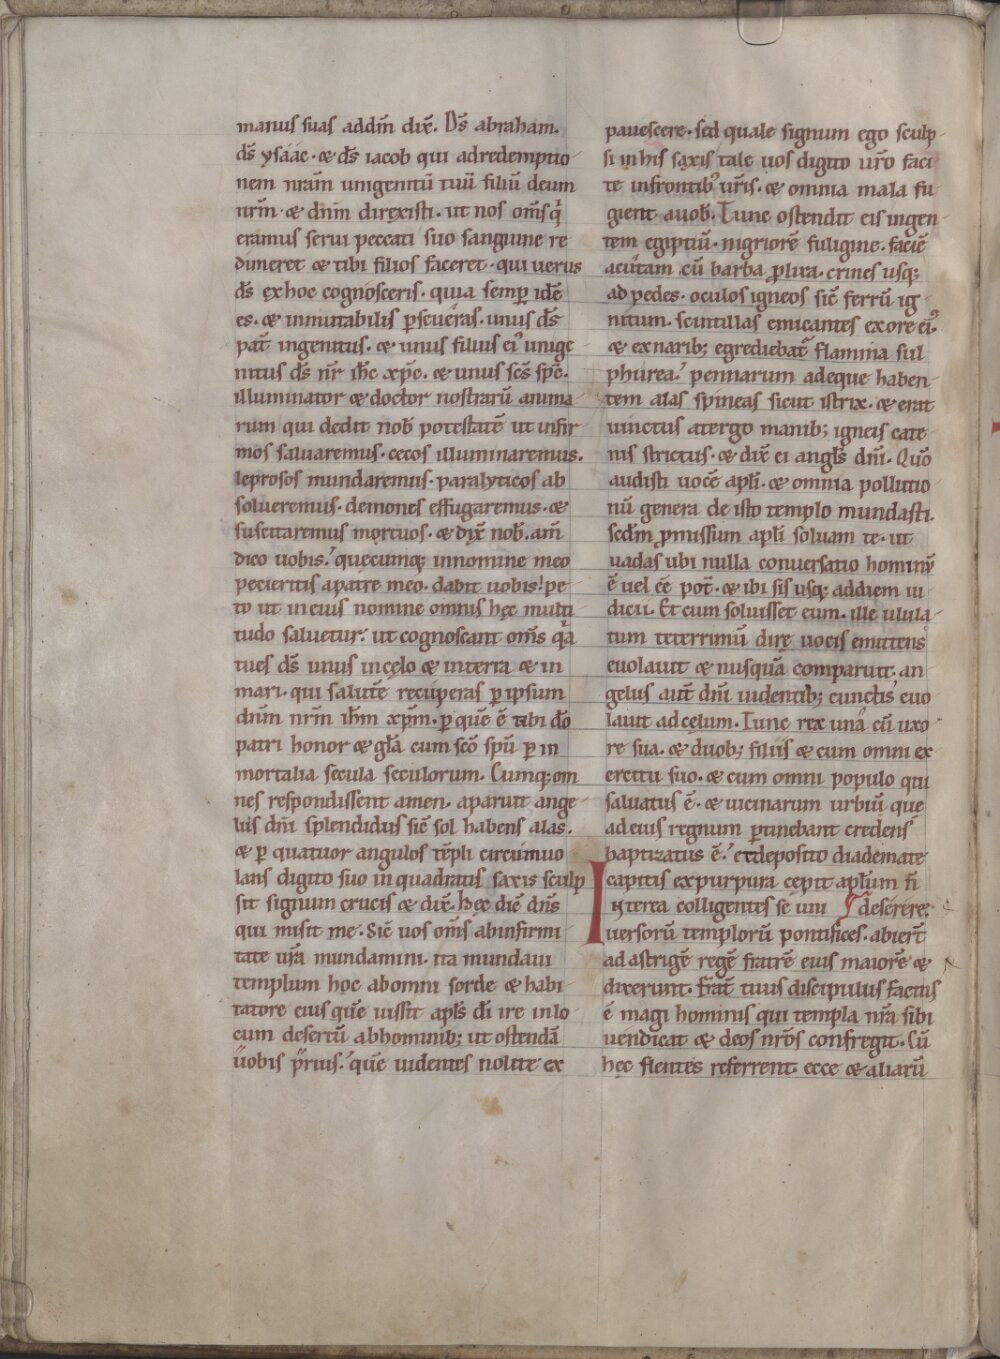 manus suas addm̄ dix̄. Ds̄ abraham.
ds̄ ysáác· & ds̄ iacob qui adredemptio
nem nr̄am unigenitū tuū filiū deum
nr̄m· & dn̄m direxisti· ut nos om̄s qͥ
eramus serui peccati suo sanguine re
dimeret & tibi filios faceret· qui uerus
ds̄ exhoc cognosceris· quia semꝑ idē
es· & inmutabilis ꝑseueras· unus ds̄
pat̄ ingenitus· & unus filius ei᾽ unige
nitus ds̄ nr̄ ih̄c xp̄c· & unus sc̄s sp̄c·
illuminator & doctor nostrarū anima
rum qui dedit nob̄ potestatē ut infir
mos saluaremus· cecos illuminaremus.
leprosos mundaremus· paralyticos ab
solueremus· demones effugaremus· &
suscitaremus mortuos· & dix̄ nob̄. am̄
dico uobis. quęcumq; innomine meo
pecieritis apatre meo· dabit uobis! pe
to ut in eius nomine omnis hęc multi
tudo saluetur. ut cognoscant om̄s qͣa
tu es ds̄ unus incęlo & interra & in
mari· qui salutē recuperas ꝑ ipsum
dn̄m nr̄m ih̄m xp̄m· ꝑ quē ē tibi dō
patri honor & glā cum scō spū ꝑ in
mortalia secula seculorum. Cumq; om
nes respondissent amen· aparuit ange
lus dn̄i splendidus sic̄ sol habens alas.
& ꝑ quatuor angulos tēpli circumuo
lans digito suo in quadratis saxis sculp
sit signum crucis & dix̄. hęc dic̄ dn̄s
qui misit me. Sic̄ uos om̄s abinfirmi
tate ur̄a mundamini. ita mundaui
templum hoc abomni sorde & habi
tatore eius quē iussit apl̄s dī ire inlo
cum desertū abhominib; ut ostendā
uobis prius. quē uidentes nolite ex
pauescere· sed quale signum ego sculp
si in his saxis tale uos digito ur̄o faci
te infrontib᾽ ur̄is. & omnia mala fu
gient auob̄. Tunc ostendit eis ingen
tem egiptiū· nigriorē fuligine. faciē
acutam cū barba ꝓlixa· crines usq;
ad pedes· oculos igneos sic̄ ferrū ig
nitum. scintillas emicantes exore ei᾽·
& exnarib; egrediebat᾽ flamma sul
phurea. pennarum adeque haben
tem alas spineas sicut istrix· & erat
uinctus atergo manib; igneis cate
nis strictus· & dix̄ ei angl̄s dn̄i. Quō
audisti uocē apl̄i. & omnia pollutio
nū genera de isto templo mundasti.
scd̄m ꝓmissum apl̄i soluam te· ut
uadas ubi nulla conuersatio hominū
ē uel eē pot̄· & ibi sis usq; addiem iu
dicii. Et cum soluisset eum. ille ulula
tum teterrimū dirę uocis emittens
euolauit & nusquā comparuit· an
gelus aut̄ dn̄i uidentib; cunctis euo
lauit ad cęlum. Tunc rex unā cū uxo
re sua· & duob; filiis & cum omni ex
ercitu suo· & cum omni populo qui
saluatus ē· & uicinarum urbiū que
ad eius regnum ꝑtinebant credens
baptizatus ē. et deposito diademate
capitis expurpura cepit aplūm n̄
Interea colligentes se uni deserere.
uersorū templorū pontifices· abier̄t
ad astrigē regē fratrē eius maiorē &
dixerunt. Frat̄ tuus discipulus factus
ē magi hominis qui templa nr̄a sibi
uendicat & deos nr̄os confregit· Cū
hęc flentes referrent ecce & aliarū